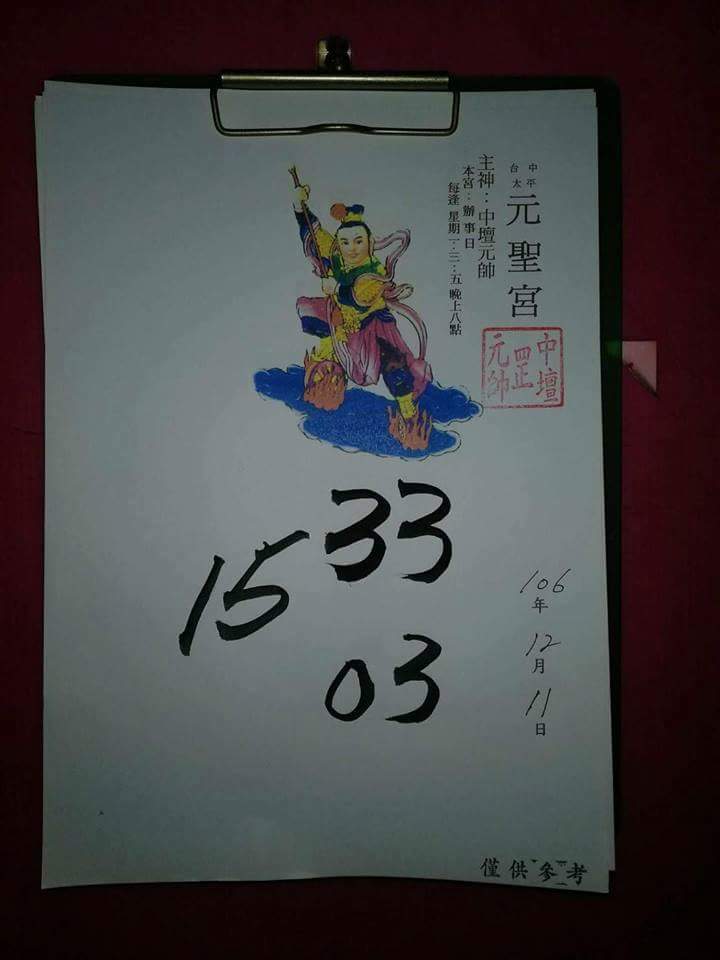 台中
太平
元聖宮
主神：中壇元帥
本宮：辦事日
每逢 星期一：三：五 晚上八點
中壇
四正
元帥
33
15
03
106
年
12
月
11
日
僅供參考